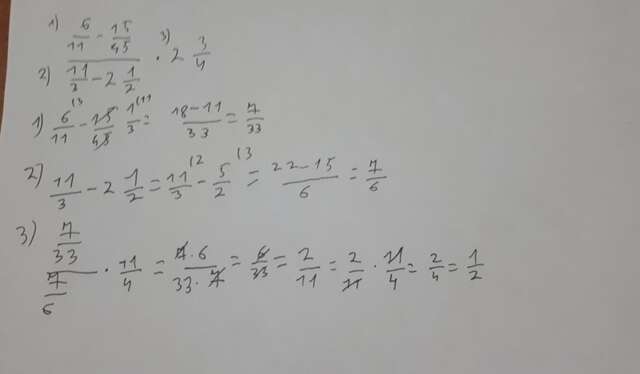 1) 6/11 - 15/45 3)
2) 11/3 - 2 1/2 · 2 3/4
1) 6(3/11 - 15/45 1(11/3 = 18-11/33 = 7/33
2) 11/3 - 2 1/2 = 11(2/3 - 5(3/2 = 22-15/6 = 7/6
3) 7/33 / 7/6 · 11/4 = 7·6/33·7 = 6/33 = 2/11 = 2/11 · 11/4 = 2/4 = 1/2